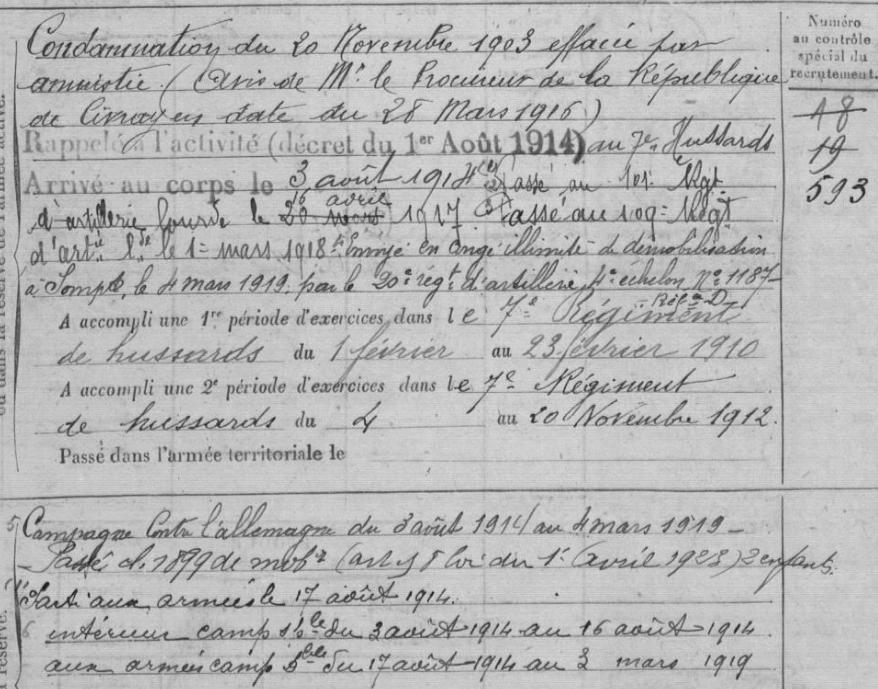 Condamnation du 20 Novembre 1903 effacée par
amnistie. (Avis de Mr. le Procureur de la République
de Civray en date du 28 Mars 1916)
Rappelé à l'activité (décret du 1er Août 1914) au 7e Hussards
Arrivé au corps le 3 août 1914 Passé au 101e Régt
16 avril
d'artillerie lourde le 20 mars 1917 Passé au 109e Régt
d'artie lde le 1er mars 1918. Envoyé en congé illimité de démobilisation
le 4 mars 1919. par le 20e régt d'artillerie, 4e échelon No 1187
A accompli une 1re période d'exercices dans le 7e Régiment
de hussards du 1 février au 23 février 1910
A accompli une 2e période d'exercices dans le 7e Régiment
de hussards du 4 au 20 Novembre 1912.
Passé dans l'armée territoriale le
Campagne Contre l'allemagne du 3 août 1914 au 4 mars 1919
Passé cl. 1899 de mob (art 58 loi du 1er avril 1923) 2 enfants.
Parti aux armées le 17 août 1914.
intérieur camp sple du 3 août 1914 au 16 août 1914
aux armées camp dble du 17 août 1914 au 3 mars 1919
Numéro
au contrôle
spécial du
recrutement.
18
19
593
ou dans la réserve de l'armée active.
réserve.